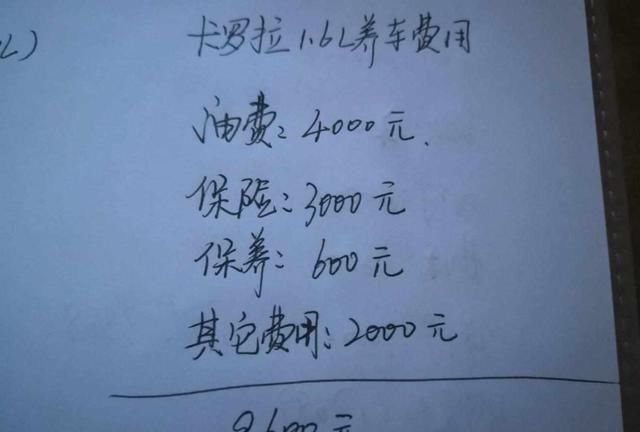 L)
卡罗拉1.6L养车费用
油费：4000元、
保险：3000元
保养：600元
其它费用：2000元
9600元